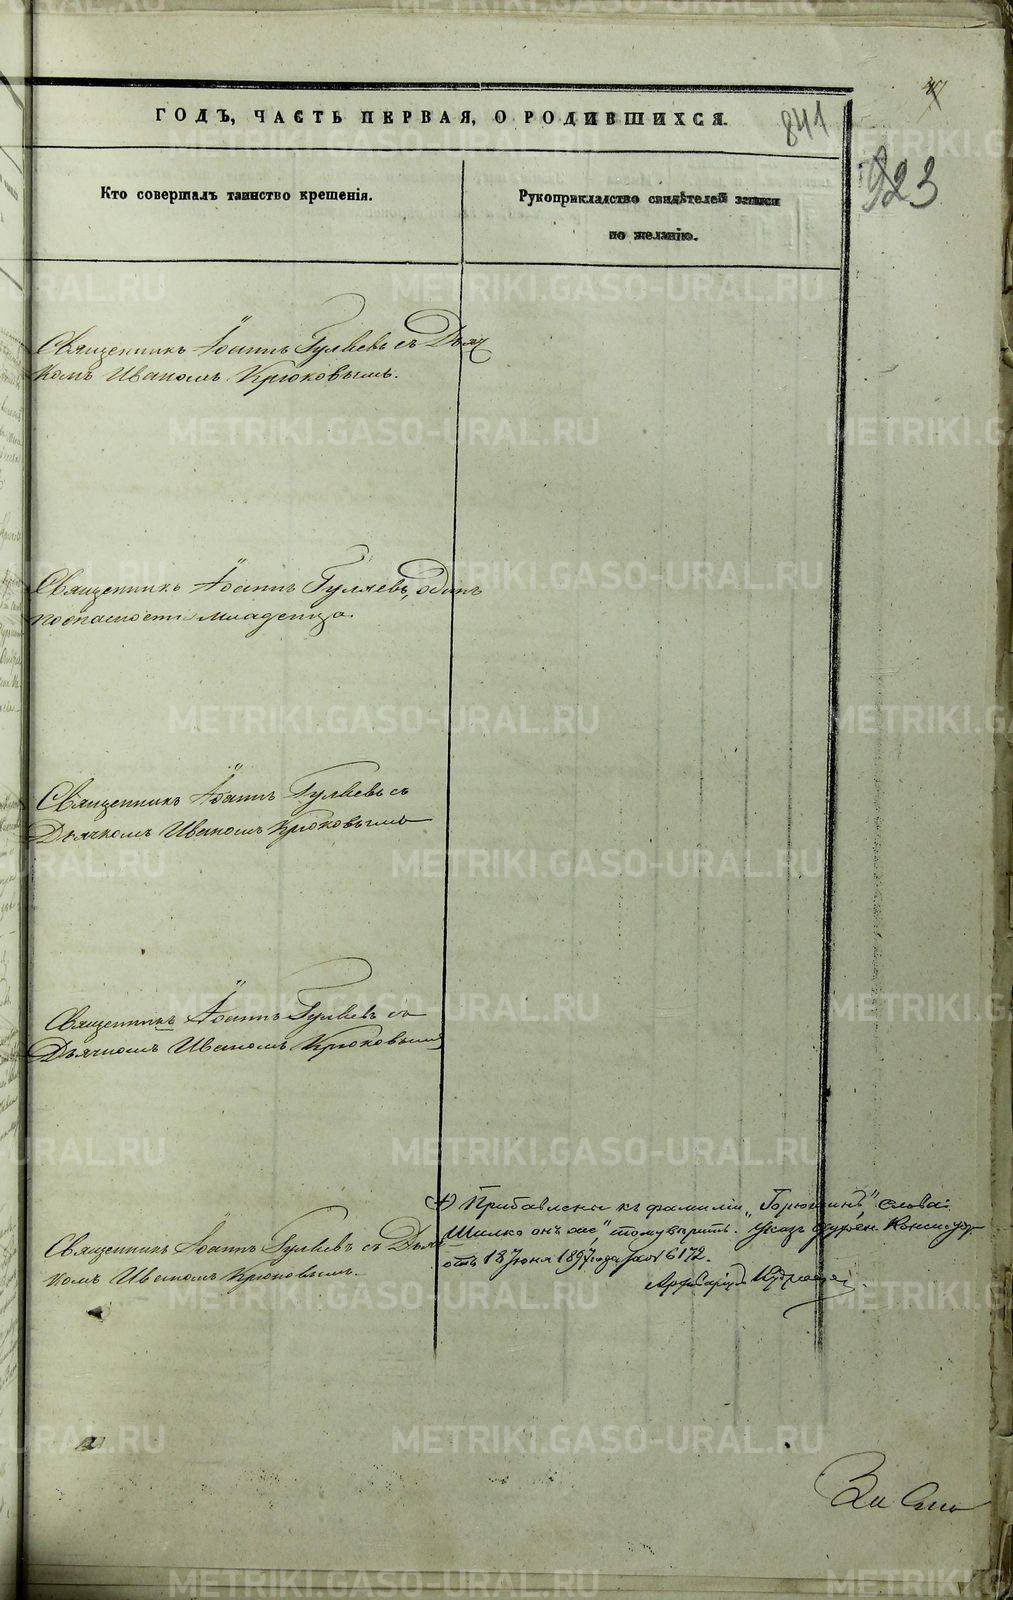 ГОДЪ, ЧАСТЬ ПЕРВАЯ, О РОДИВШИХСЯ.
841
923
Кто совершалъ таинство крещенія.
Рукоприкладство свидѣтелей записи
по желанію.
Священникъ Іоаннъ Гуляевъ съ Дьяч
комъ Иваномъ Крюковымъ.
Священникъ Іоаннъ Гуляевъ, одинъ
по опасности младенца.
Священникъ Іоаннъ Гуляевъ съ
Дьячкомъ Иваномъ Крюковымъ
Священникъ Іоаннъ Гуляевъ съ
Дьячкомъ Иваномъ Крюковымъ
Священникъ Іоаннъ Гуляевъ съ Дьяч
комъ Иваномъ Крюковымъ.
Прибавлены къ фамиліи „ слова:
Шилко онъ же", Указъ Консистор.
отъ 18 Іюня 1897 года за № 6172.
METRIKI.GASO-URAL.RU